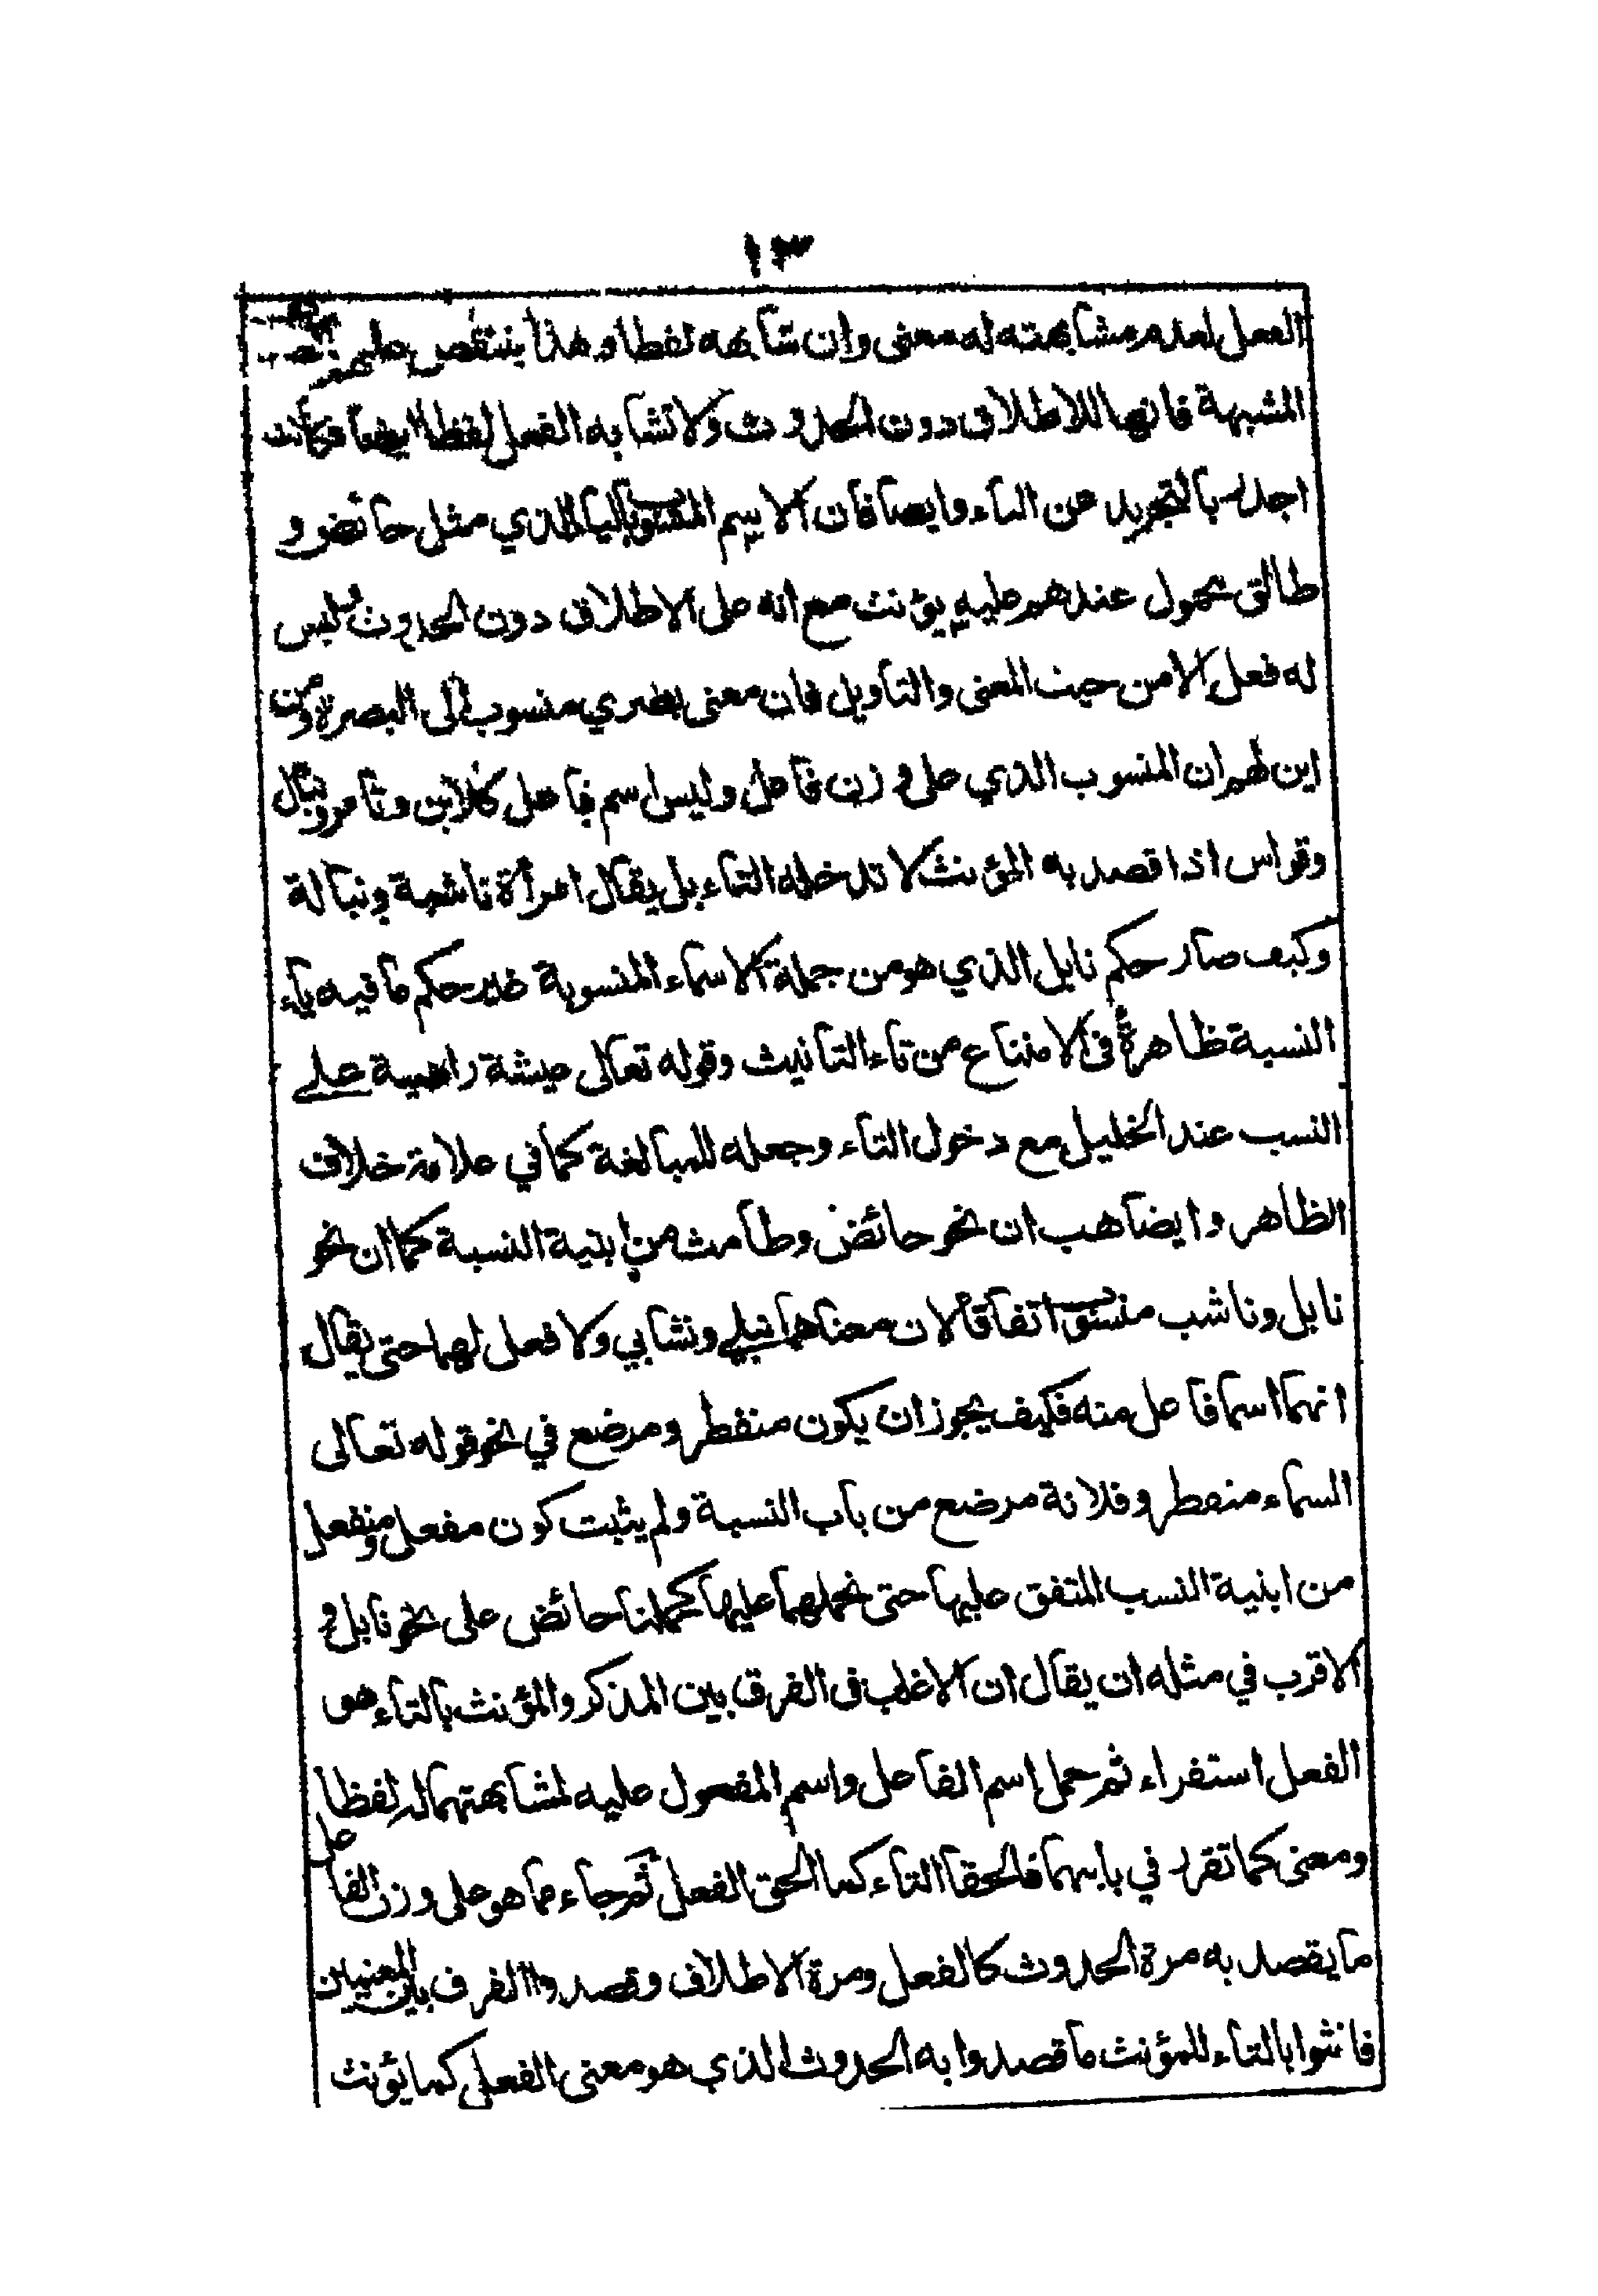 ١٣
الفعل لعدم مشابهته له معنى وان شابهه لفظا وهذا ينتقض عليهم
المشبهة فانها للاطلاق دون الحدوث ولا تشابه الفعل لفظا ايضا فكانت
اجدر بالتجريد عن التاء وايضا فان الاسم المنسوب بالياء الذي مثل حائض و
طالق محمول عندهم عليه يؤنث مع انه على الاطلاق دون الحدوث وليس
له فعل الا من حيث المعنى والتاويل فان معنى بصري منسوب الى البصرة ومن
اين لهم ان المنسوب الذي على وزن فاعل وليس اسم فاعل كلابن وتامر ونبال
وقواس اذا قصد به المؤنث لا تدخله التاء بل يقال امرأة ناشبة ونبالة
وكيف صار حكم نابل الذي هو من جملة الاسماء المنسوبة غير حكم ما فيه ياء
النسبة ظاهرة في الامتناع من تاء التانيث وقوله تعالى عيشة راضية على
النسب عند الخليل مع دخول التاء وجعله للمبالغة كما في علامة خلاف
الظاهر وايضا هب ان نحو حائض وطامث من ابنية النسبة كما ان نحو
نابل وناشب منسوب اتفاقا لان معناهما نبلي ونشابي ولا فعل لهما حتى يقال
انهما اسما فاعل منه فكيف يجوز ان يكون منفطر ومرضع في نحو قوله تعالى
السماء منفطر وفلانة مرضع من باب النسبة ولم يثبت كون مفعل ومنفعل
من ابنية النسب المتفق عليها حتى نحملهما عليها كحملنا حائض على نحو نابل و
الاقرب في مثله ان يقال ان الاغلب في الفرق بين المذكر والمؤنث بالتاء هو
الفعل استقراء ثم حمل اسم الفاعل واسم المفعول عليه لمشابهتهما له لفظا
ومعنى كما تقرر في بابهما فالحقا التاء كما الحق الفعل ثم جاء مما هو على وزن الفاعل
ما يقصد به مرة الحدوث كالفعل ومرة الاطلاق وقصدوا الفرق بين المعنيين
فانثوا بالتاء للمؤنث ما قصدوا به الحدوث الذي هو معنى الفعل كما يؤنث